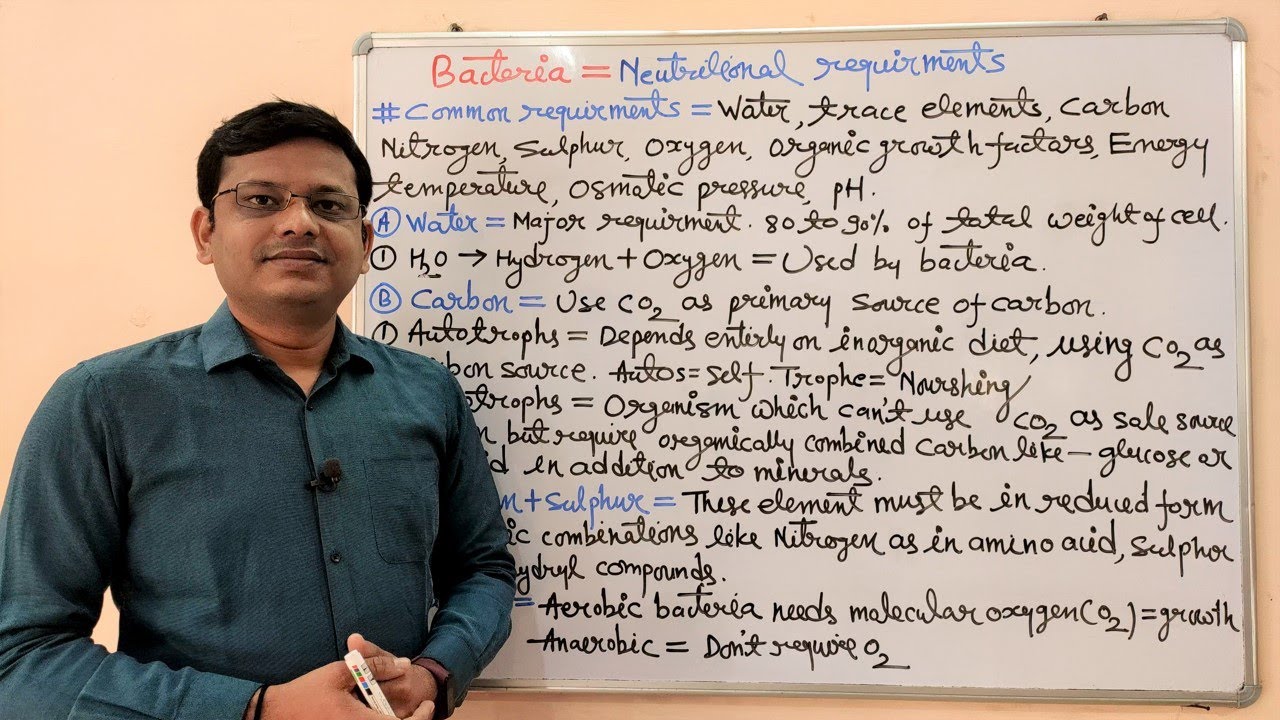 Bacteria = Neutritional requirments
# Common requirments = Water, trace elements, Carbon
Nitrogen, Sulphur, Oxygen, Organic growth factars, Energy
temperature, Osmatic pressure, pH.
Ⓐ Water = Major requirment. 80 to 90% of total weight of cell.
① H₂O → Hydrogen + Oxygen = Used by bacteria.
Ⓑ Carbon = Use CO₂ as primary source of carbon.
① Autotrophs = Depends entirly on inorganic diet, using CO₂ as
bon source. Autos = Self. Trophe = Nourshing
trophs = Organism which can't use CO₂ as sale source
n but require oregamically combined Carbon like - glucose or
id in addition to minerals.
n + Sulphur = These element must be in reduced form
ic combinations like Nitrogen as in amino acid, Sulphor
ydryl compounds.
= Aerobic bacteria needs molecular oxygen (O₂) = growth
Anaerobic = Don't require O₂